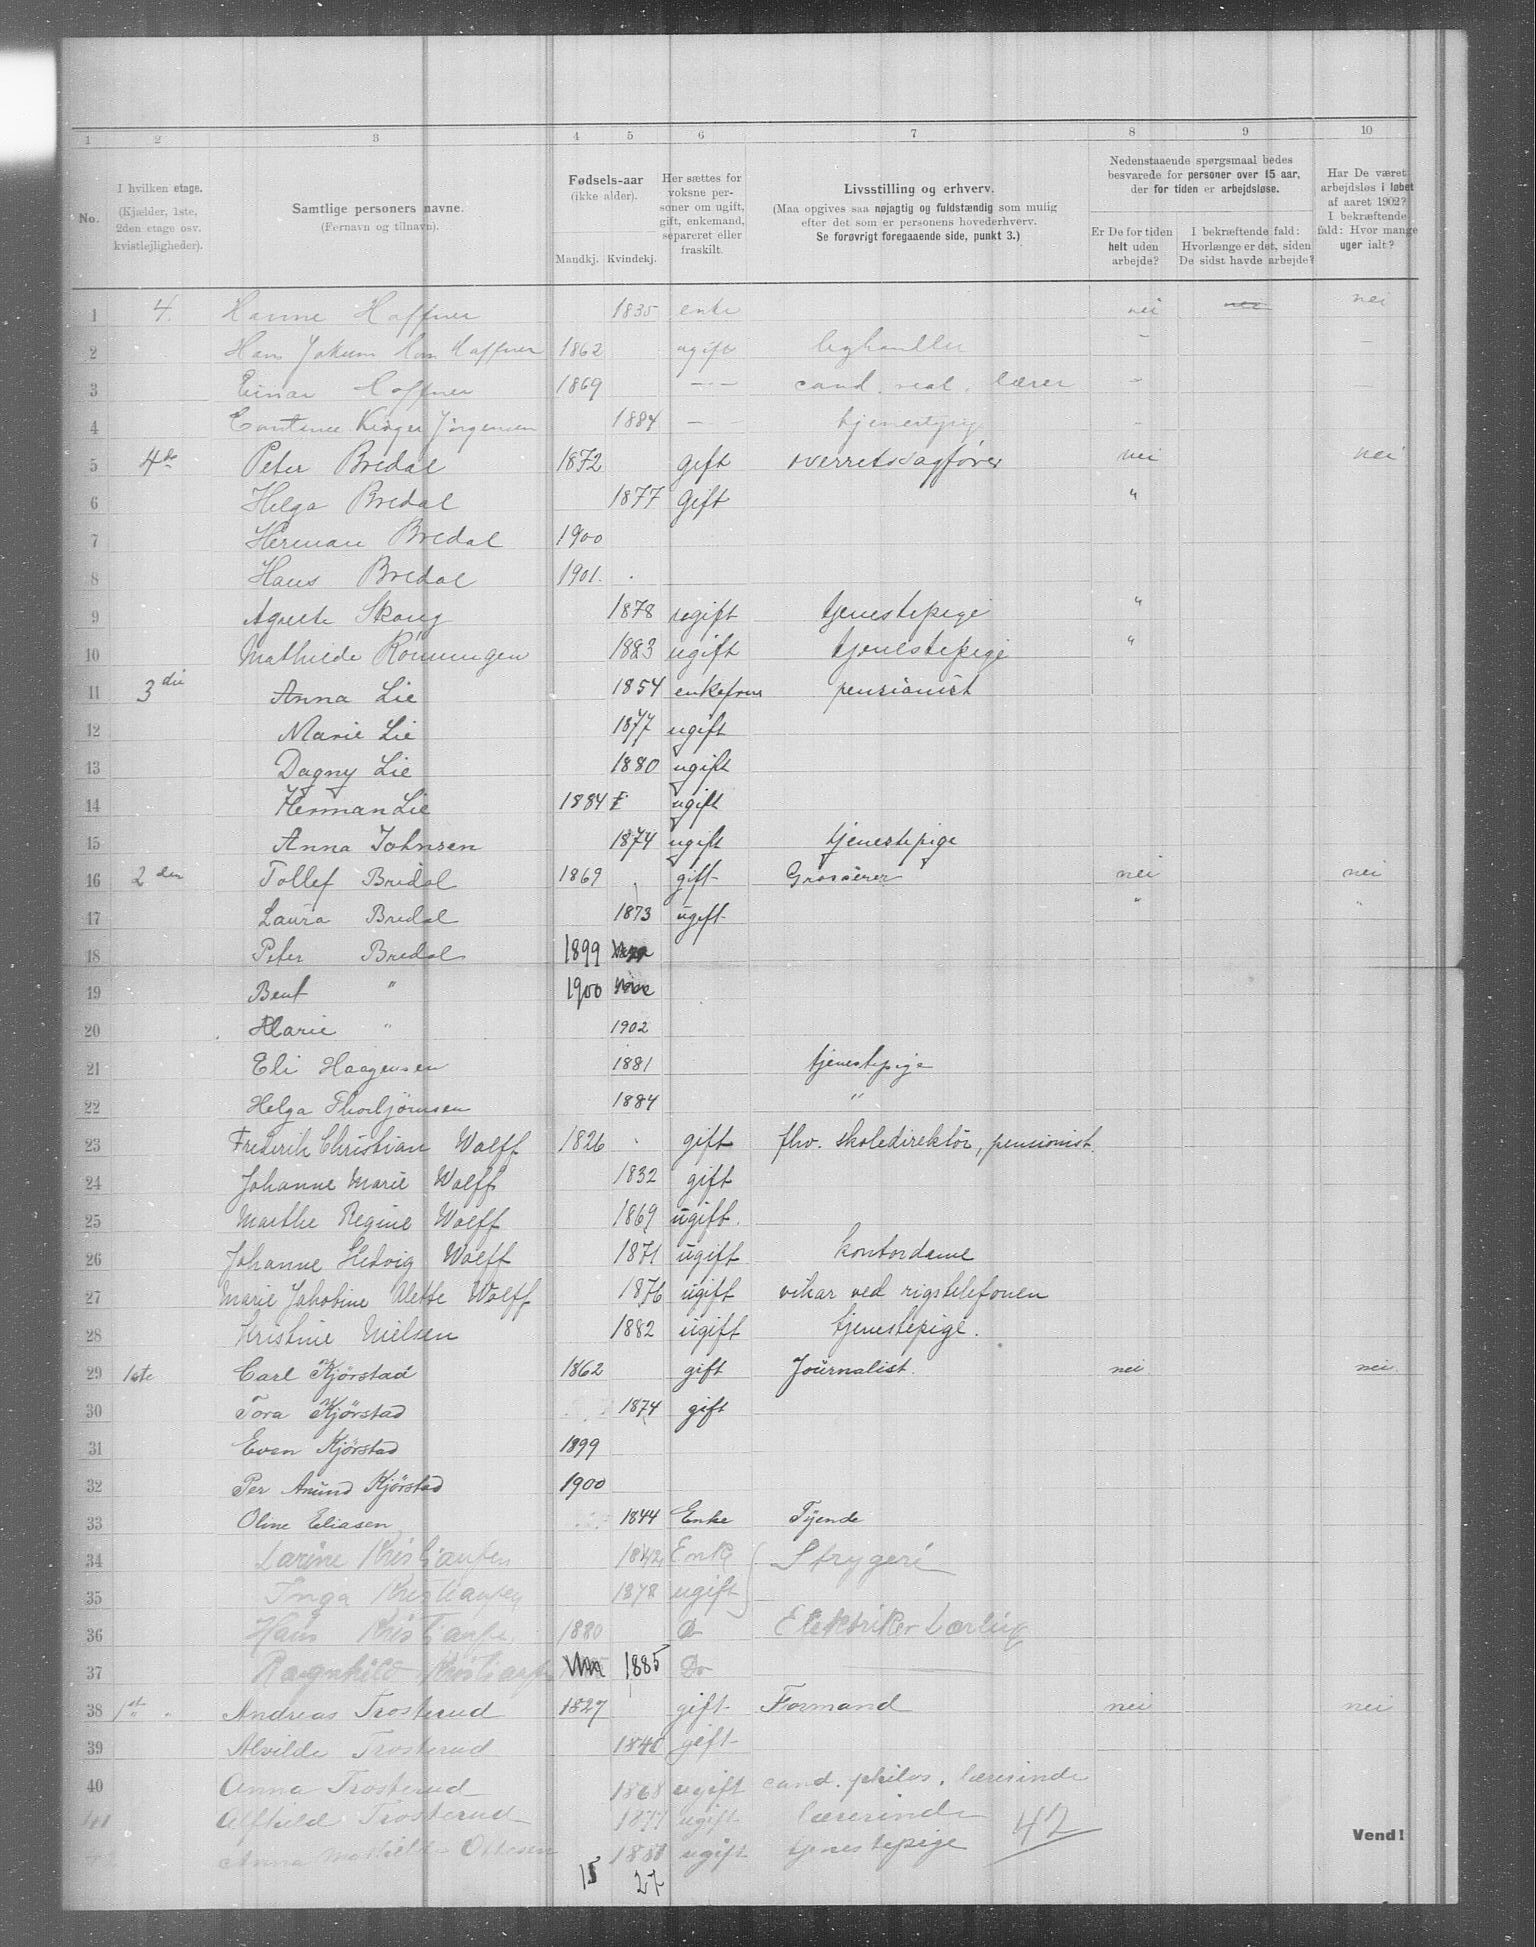 1 2 3 4 5 6 7 8 9 10
No.
I hvilken etage.
(Kjælder, 1ste,
2den etage osv.
kvistlejligheder).
Samtlige personers navne.
(Fornavn og tilnavn).
Fødsels-aar
(ikke alder).
Mandkj. Kvindekj.
Her sættes for
voksne per-
soner om ugift,
gift, enkemand,
separeret eller
fraskilt.
Livsstilling og erhverv.
(Maa opgives saa nøjagtig og fuldstændig som mulig
efter det som er personens hovederhverv.
Se forøvrigt foregaaende side, punkt 3.)
Nedenstaaende spørgsmaal bedes
besvarede for personer over 15 aar,
der for tiden er arbejdsløse.
Er De for tiden
helt uden
arbejde?
I bekræftende fald:
Hvorlænge er det, siden
De sidst havde arbejde?
Har De været
arbejdsløs i løbet
af aaret 1902?
I bekræftende
fald: Hvor mange
uger ialt?
1 4. Hanne Haffner 1835 enke nei nei nei
2 Hans Jakum Haffner 1862 ugift
3 Einar Haffner 1869 cand. real. lærer
4 Jørgensen 1884 tjenestpige
5 4de Peter Bredal 1872 gift overretssagfører nei nei
6 Helga Bredal 1877 Gift "
7 Herman Bredal 1900
8 Hans Bredal 1901.
9 Agnete Skaug 1878 ugift tjenestepige "
10 Mathilde Rönningen 1883 ugift tjenestepige "
11 3die Anna Lie 1854 enkefrue pensionist
12 Marie Lie 1877 ugift
13 Dagny Lie 1880 ugift
14 Herman Lie 1884 ugift
15 Anna Johnsen 1874 ugift tjenestepige
16 2den Tollef Bredal 1869 gift Grosserer nei nei
17 Laura Bredal 1873 ugift " "
18 Peter Bredal 1899
19 Bent " 1900
20 Marie " 1902
21 Eli Haagensen 1881 tjenestepige
22 Helga Thorbjørnsen 1884 "
23 Frederik Christian Wolff 1826 gift fhv. skoledirektör, pensionist.
24 Johanne Marie Wolff 1832 gift
25 Marthe Regine Wolff 1869 ugift.
26 Johanne Hedvig Wolff 1871 ugift kontordame
27 Marie Jakobine Alette Wolff 1876 ugift vikar ved rigstelefonen
28 Kristine Nielsen 1882 ugift tjenestepige.
29 1ste Carl Kjörstad 1862 gift Journalist. nei nei
30 Tora Kjörstad 1874 gift
31 Even Kjörstad 1899
32 Per Amund Kjörstad 1900
33 Oline Eliasen 1844 Enke Tyende
34 Larine Kristiansen 1842 Enke Strygeri
35 Inga Kristiansen 1878 ugift
36 Hans Kristiansen 1880 Do Elektriker Lærling
37 Ragnhild Kristiansen 1885 Do
38 1st " Andreas Trosterud 1827 gift Formand nei nei
39 Alvilde Trosterud 1841 gift
40 Anna Trosterud 1868 ugift cand. philos. lærerinde
41 Alfhild Trosterud 1877 ugift lærerinde
42 Anna Mathilde Ottesen 1881 ugift tjenestepige 42
15 27
Vend!